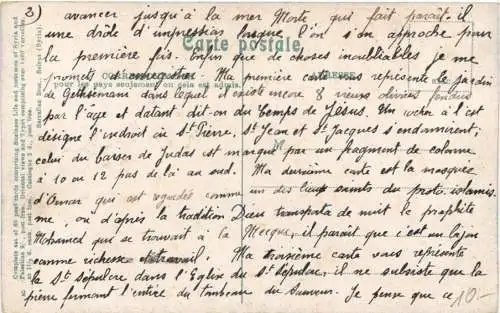 3)
avancer jusqu'à la mer Morte qui fait paraît-il
une drôle d'impression lorsque l'on s'en approche pour
Carte postale
la première fois. Enfin que de choses inoubliables je me
promets Ma première carte vous représente le Jardin
pour les pays seulement où cela est admis.
de Gethsemani dans lequel il existe encore 8 vieux oliviers
par l'âge et datant dit-on du temps de Jésus. Un rocher à l'est
désigne l'endroit où St Pierre, St Jean et St Jacques s'endormirent;
celui du baiser de Judas est marqué par un fragment de colonne
à 10 ou 12 pas de là au sud. Ma deuxième carte est la mosquée
d'Omar qui est regardée comme un des lieux saints
où d'après la tradition Dieu transporta de nuit le prophète
Mohamed qui se trouvait à la Mecque, il paraît que c'est un bijou
comme richesse travail. Ma troisième carte vous représente
le St Sépulcre dans l'Eglise du St Sépulcre, il ne subsiste que la
pierre fermant l'entrée du tombeau du Sauveur. Je pense que ce
10.-